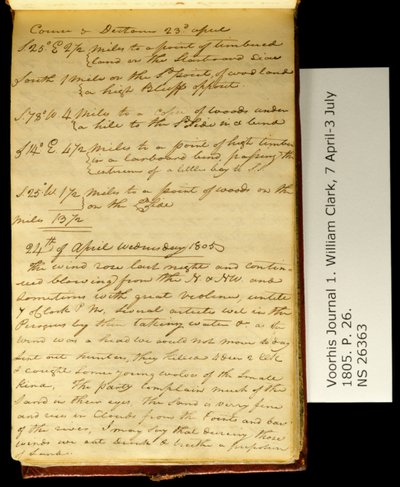 Course & Distance 23d april
S 25° E 2 1/2 miles to a point of timbered
land on the Starboard Side
South 1 Mile on the Sd point, of wood land
a high Bluff oppsit.
S. 78° W 4 Miles to a point of woods under
a hill to the Sd Side in a bend
S 14° E 4 1/2 miles to a point of high timber
in a Larboard bend, passing the
extreem of a little bay to S.S.
S 25° W 1 1/2 miles to a point of woods on the
on the Side
miles 13 1/2
24th of April Wednesday 1805
The wind rose last night and contin-
ued blowing from the N. & NW. and
Sometimes with great violence, untill
7 oClock P. M, Several articles wet in the
Perogus by their takeing water &c as the
wind was a head we could not move to day
Sent out hunters, they killed 4 Deer 2 Elk
& cought Some young wolves of the Small
kind, The party complain much of the
Sand in their eyes, the Sand is very fine
and rises in Clouds from the Points and bars
of the river, I may Say that dureing those
winds we eat Drink & breeth a prepotion
of Sand.
Voorhis Journal 1. William Clark, 7 April-3 July
1805. P. 26.
NS 26363